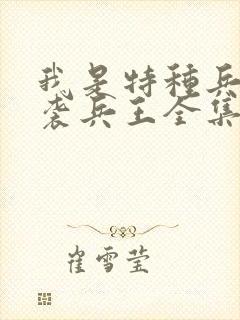 我是特種兵
袭兵王全集
崔雪莹